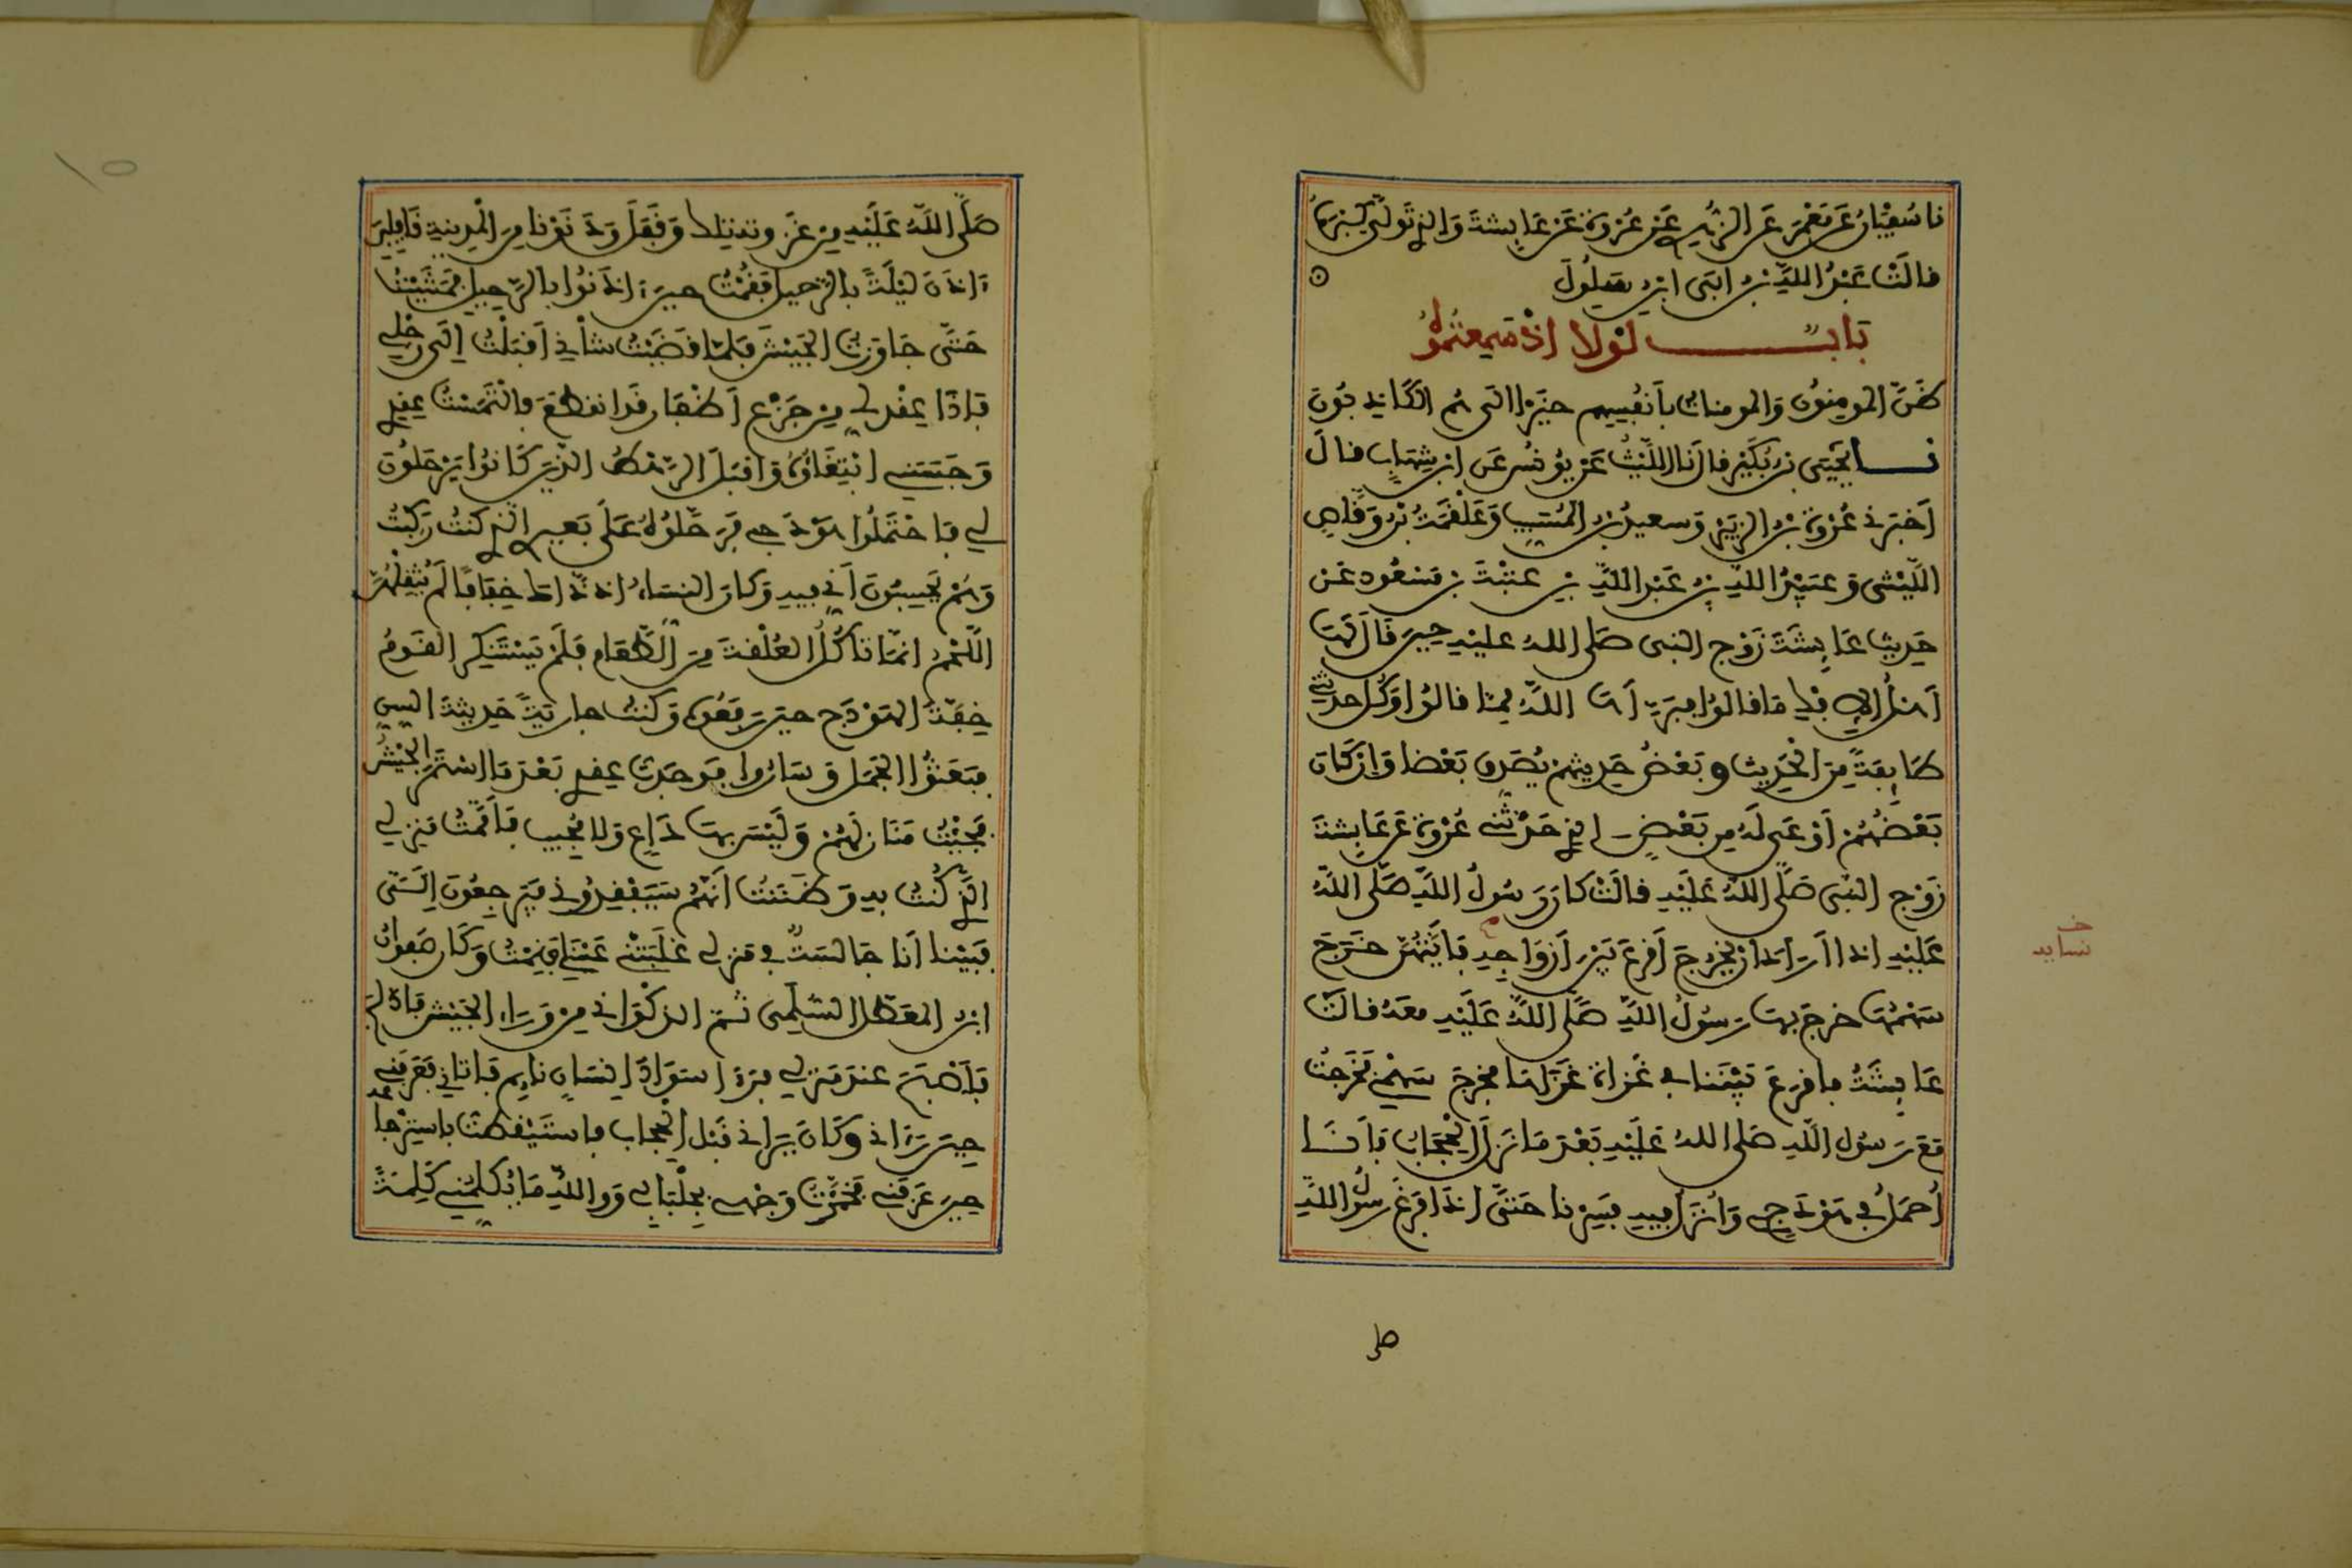 نا سُفيٰن عَن مَعْمَر عَن الزُّهرِي عَن عُرْوَة عَن عَايِشَة وَالذِي تَوَلَّى كِبْرَهُ
قالَتْ عَبْدُ اللَّهِ بن أبَي ابن سَلُولَ
بَابٌ لَوْلا اذْ سَمِعتمُوهُ
ظَنَّ المومِنُون وَالمومنات بأنفُسِهم خَيْرا الى هُم الكَاذِبُونَ
نا يَحْيَى بن بُكَيْر قال نا اللَّيْثُ عَن يُونُس عَن ابن شِهَابٍ قالَ
أخبَرَنِي عُرْوَة بْن الزبَيْر وَسعيدُ بن المُسَيِّب وَعَلْقَمَة بْن وَقَّاصٍ
اللَّيْثى وَعُبَيْدُ اللَّهِ بن عَبْدِ اللَّهِ بْن عتبَةَ بن مَسْعُود عَن
حَدِيث عَايِشَةَ زَوْج النبى صَلى اللهُ عليْهِ حِينَ قَالَ لَهَا
أهْلُ الإفْكِ مَا قالُوا فبَرَّأهَا اللَّهُ مِمّا قالُوا وَكُل حدثنِي
طَايِفَةً مِنَ الْحَدِيث وبَعْضُ حَدِيثهِمْ يُصَدِّق بَعْضا وَإن كَانَ
بَعْضُهُمْ أوْعَى لَهُ مِن بَعْضٍ الذِي حَدَّثَنِي عُرْوَة عَن عَايِشَةَ
زَوْج النبِى صَلَّى اللَّهُ عَلَيْهِ قالَتْ كان رَسُولُ اللَّهِ صَلَّى اللَّهُ
عَلَيْهِ اذا اَرَادَ ان يخرجَ أقرَعَ بَيْن أزوَاجِهِ فَايَتُهُنَّ خَرَجَ
خ نسايه
سَهْمُهَا خرجَ بها رَسُولُ اللَّهِ صَلَّى اللَّهُ عَلَيْهِ معَهُ قالَتْ
عَايِشَةُ فاقرعَ بَيْنَنا فِي غَزاة غَزَاهَا فخرجَ سَهْمِي فَخَرَجْتُ
مَعَ رَسُولِ اللَّهِ صَلى اللهُ عَلَيْهِ بَعْدَ مَا نَزَلَ الْحِجَابُ فَأنَا
أُحمَلُ فِي هَوْدَجِي وَأُنزَل فِيهِ فسِرْنا حَتَّى إذا فَرَغَ رسُولُ اللَّهِ
صلى
صَلَّى اللَّهُ عَلَيْهِ مِن غَزوته تلك وَقَفَلَ وَدَنَوْنا مِنَ الْمَدِينةِ قَافِلِينَ
ءاذَنَ لَيْلَةً بِالرَّحِيلِ فَقُمْتُ حِينَ ءاذَنُوا بِالرَّحِيل فَمَشَيْتُ
حَتَّى جَاوَزتُ الجَيْشَ فَلَمَّا قَضَيْتُ شأْنِي أقْبَلْتُ إلَى رَحْلِي
فَإذَا عِقْد لِي مِن جَزْعِ أظْفَار قَد انقطَعَ فالْتَمَسْتُ عِقدِي
وَحَبَسَنِي ابْتِغَاؤُهُ وَأقبَلَ الرَّهْطُ الذِينَ كَانُوا يَرْحَلُونَ
لِي فاحْتَمَلُوا هَوْدَجِي فَرَحَّلُوهُ عَلَى بَعِيرِي الذِي كنتُ رَكِبْتُ
وَهُمْ يَحسِبُونَ أنِّي فِيهِ وَكَانَ النِسَاءُ إذ ذَّاكَ خِفَافًا لَمْ يُثْقِلْهُنَّ
اللَّحْمُ انمَّا تَأكُلُ العُلْقَةَ مِنَ الطَّعَام فَلَمْ يَسْتَنكِر القَومُ
خِفَّةَ الهَوْدَج حِينَ رَفَعُوهُ وَكُنتُ جارِيَةً حَدِيثَةَ السِّنِّ
فبَعَثُوا الجَمَلَ وَسَارُوا فَوَجَدتُ عِقدِي بَعْدَ مَا اسْتَمَرَّ الجَيْشُ
فَجِئْتُ مَنَازِلَهُمْ وَلَيْسَ بها دَاعٍ وَلا مُجِيبٍ فَأَمَّمْتُ مَنزِلِي
الذِي كُنتُ بِهِ وَظَنَنتُ أنَّهُم سَيَفْقِدُونِي فَيَرجِعُونَ إلَيَّ
فَبَيْنا أنَا جَالسَةٌ فِي مَنزِلِي غَلَبَتْنِي عَيْنِي فَنِمْتُ وَكَانَ صَفوانُ
ابن المعَطَّل السُّلَمِى ثُمّ الذكْوَانِي مِن وَرَاءِ الجَيْش فَادَّلَجَ
فَأصْبَحَ عندَ مَنزِلِي فرَءا سَوَادَ إنسَانٍ نايِم فَأتانِي فَعَرَفَنِي
حِينَ رَءانِي وَكَانَ يَرَانِي قَبْل الْحِجاب فاستَيْقظْتُ باسْتِرْجاعِهِ
حِينَ عَرَفَنِي فَخمَّرْتُ وَجْهِي بِجِلْبَابِي وَوالله مَا يُكَلِّمُنِي كَلِمَةً